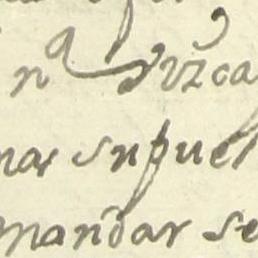 nª Vizca
nar supuel
mandar se